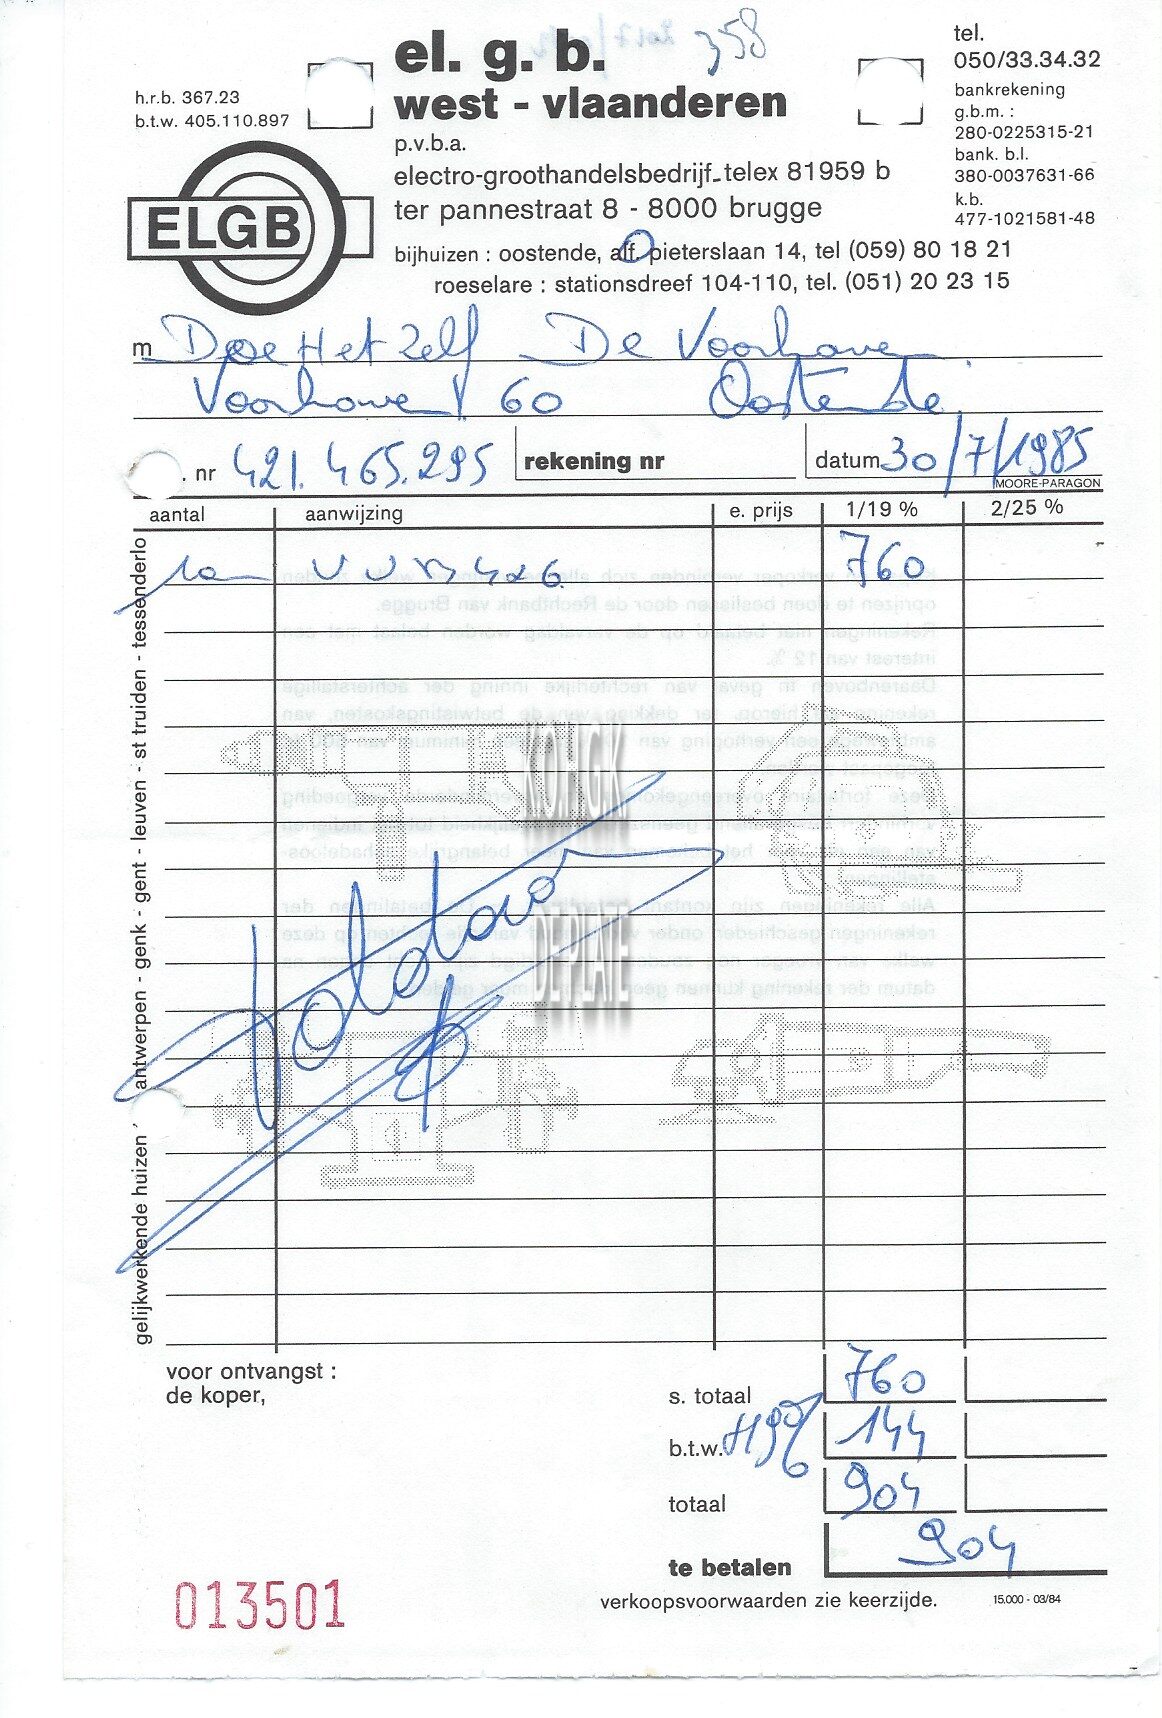 358
el. g. b.
west - vlaanderen
p.v.b.a.
electro-groothandelsbedrijf-telex 81959 b
ter pannestraat 8 - 8000 brugge
bijhuizen : oostende, alf. pieterslaan 14, tel (059) 80 18 21
roeselare : stationsdreef 104-110, tel. (051) 20 23 15
h.r.b. 367.23
b.t.w. 405.110.897
ELGB
tel.
050/33.34.32
bankrekening
g.b.m. :
280-0225315-21
bank. b.l.
380-0037631-66
k.b.
477-1021581-48
m Doe Het Zelf De Voorhaven
Voorhaven 60 Oostende
. nr 421.465.295 rekening nr datum 30/7/1985
MOORE-PARAGON
aantal aanwijzing e. prijs 1/19 % 2/25 %
760
gelijkwerkende huizen antwerpen - genk - gent - leuven - st truiden - tessenderlo
Voldaan
voor ontvangst :
de koper,
s. totaal 760
b.t.w. 19% 144
totaal 904
te betalen 904
013501
verkoopsvoorwaarden zie keerzijde. 15.000 - 03/84